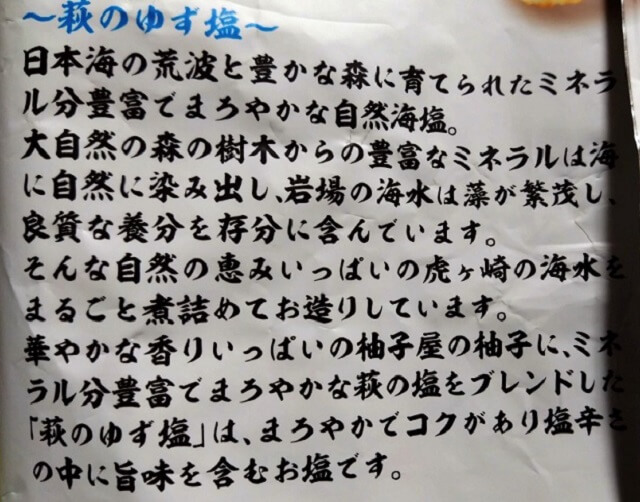 ～萩のゆず塩～
日本海の荒波と豊かな森に育てられたミネラ
ル分豊富でまろやかな自然海塩。
大自然の森の樹木からの豊富なミネラルは海
に自然に染み出し、岩場の海水は藻が繁茂し、
良質な養分を存分に含んでいます。
そんな自然の恵みいっぱいの虎ヶ崎の海水を
まるごと煮詰めてお造りしています。
華やかな香りいっぱいの柚子屋の柚子に、ミネ
ラル分豊富でまろやかな萩の塩をブレンドした
「萩のゆず塩」は、まろやかでコクがあり塩辛さ
の中に旨味を含むお塩です。